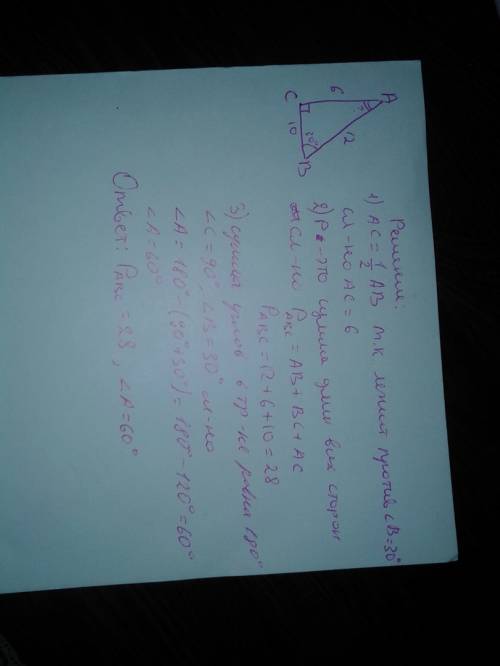 A
6
12
C
10
30°
B
Решение:
1) AC = 1/2 AB т.к лежит против ∠B=30°
сл-но AC = 6
2) P - это сумма длин всех сторон
сл-но P_ABC = AB + BC + AC
P_ABC = 12 + 6 + 10 = 28
3) сумма углов в тр-ке равна 180°
∠C = 90°, ∠B = 30° сл-но
∠A = 180° - (90°+30°) = 180° - 120° = 60°
∠A = 60°
Ответ: P_ABC = 28, ∠A = 60°